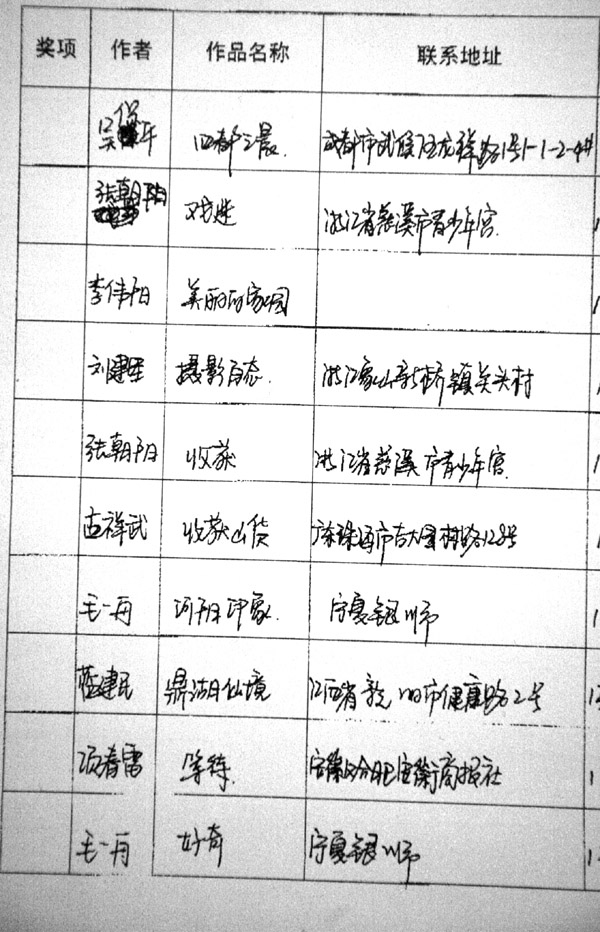 奖项 作者 作品名称 联系地址
吴保平 四都之晨. 成都市武侯区龙祥路1号1-1-2-4#
张朝阳 戏迷 浙江省慈溪市青少年宫
李伟阳 美丽的家园
刘建军 摄影百态. 浙江象山新桥镇关头村
张朝阳 收获 浙江省慈溪市青少年宫
古祥武 收获山货 广东珠海市吉大园林路128号
毛一丹 河阳印象. 宁夏银川市
蓝建民 鼎湖仙境 江西省 市健康路2号
项春雷 等待. 安徽合肥安徽商报社
毛一丹 好奇 宁夏银川市